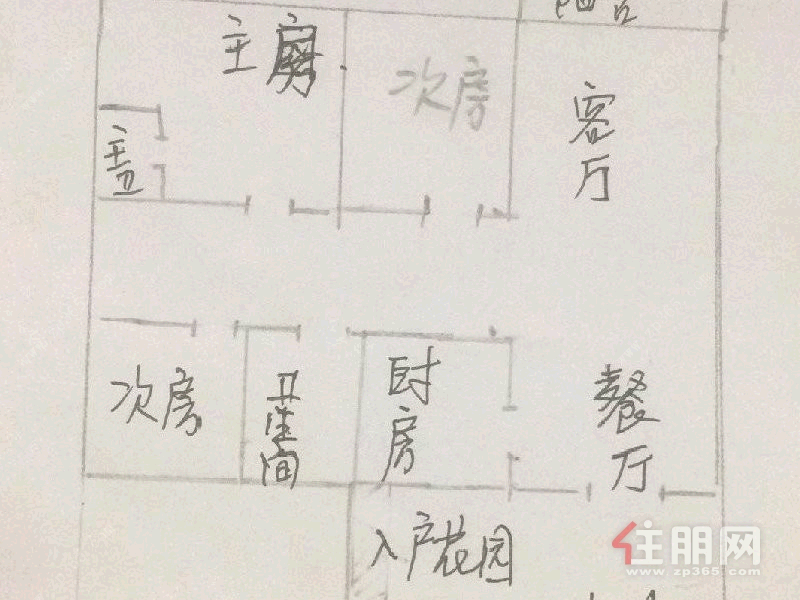 阳台
主房
次房
客厅
主卫
次房
卫生间
厨房
餐厅
入户花园
住朋网
www.zp365.com